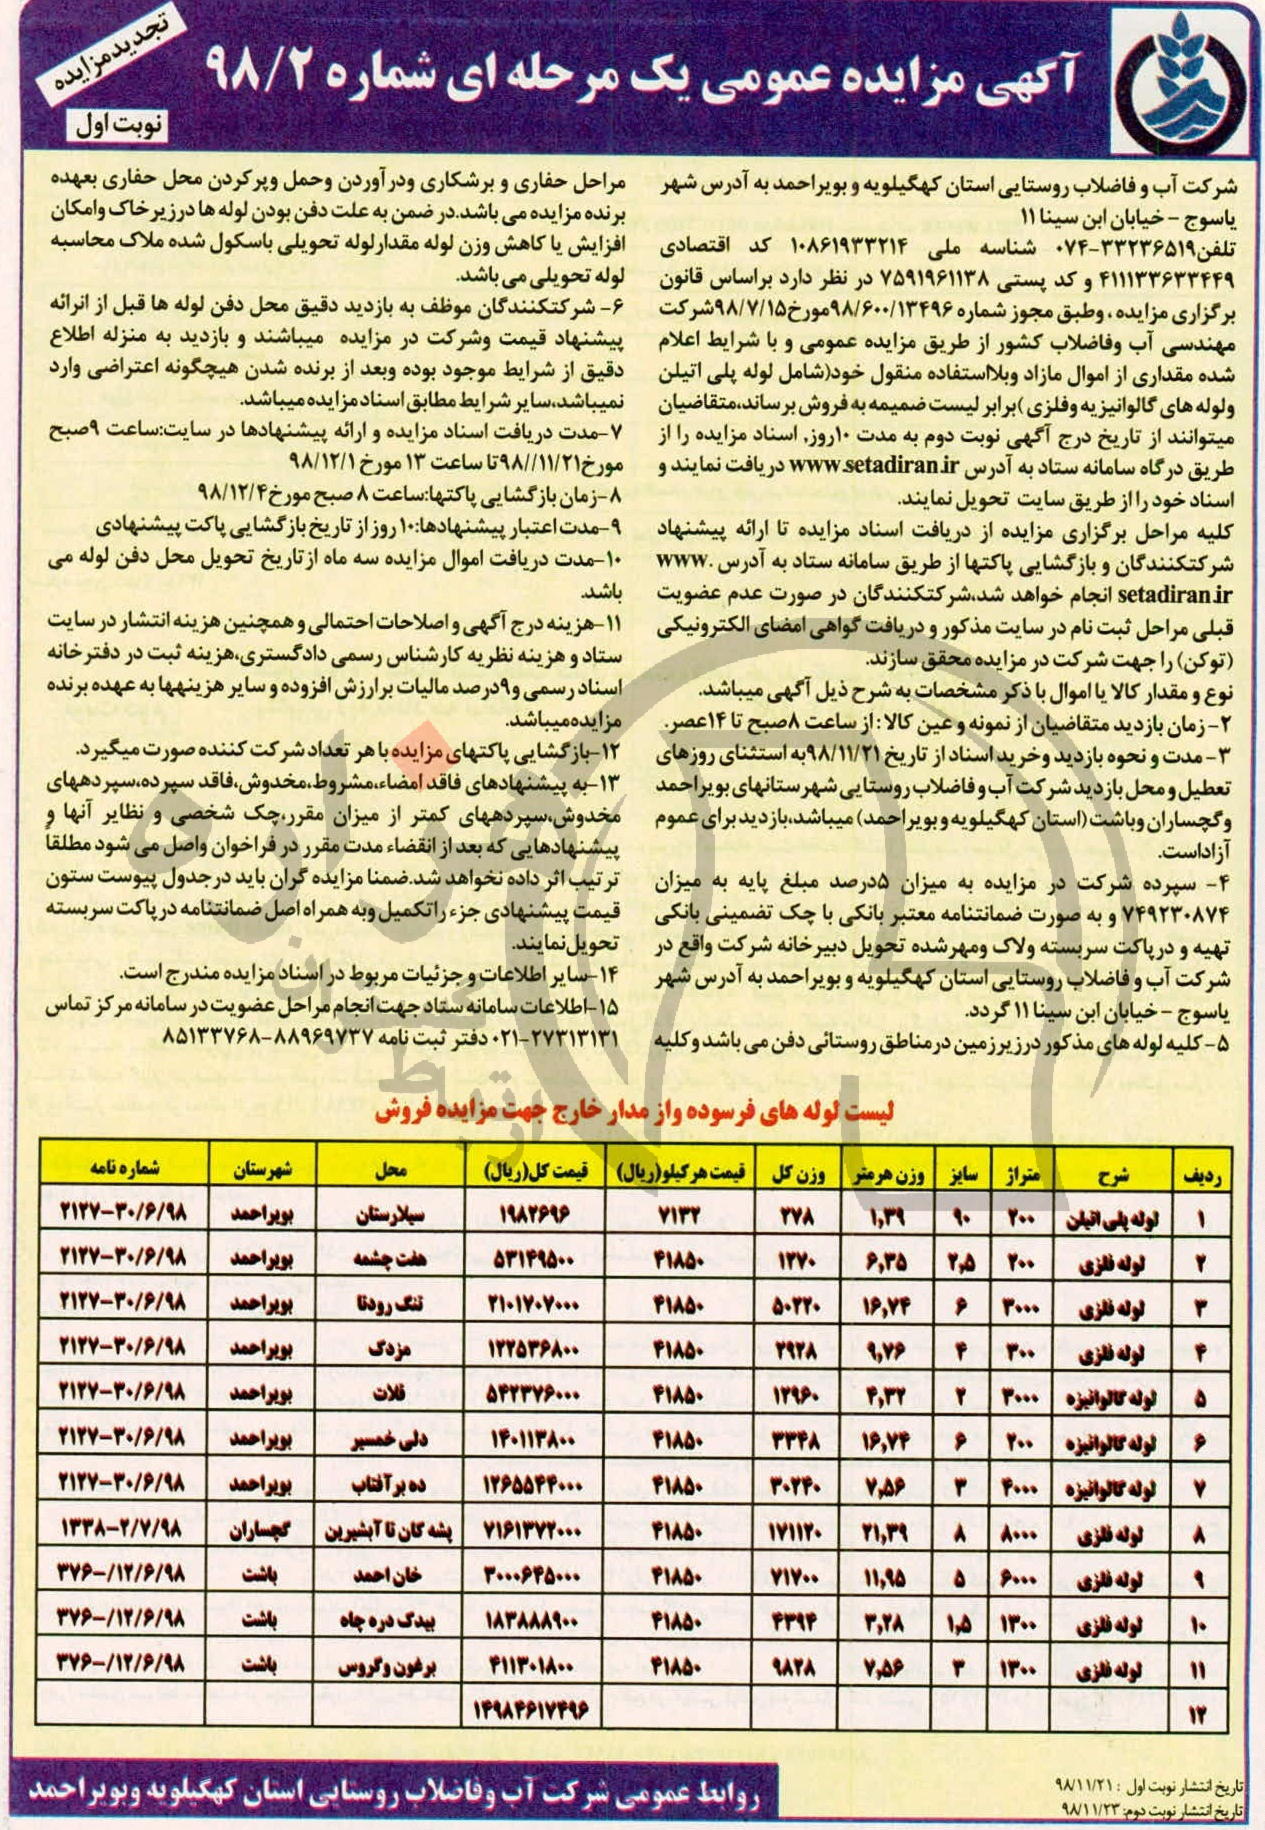 آگهی مزایده عمومی یک مرحله ای شماره ۹۸/۲
تجدیدمزایده
نوبت اول
شرکت آب و فاضلاب روستایی استان کهگیلویه و بویراحمد به آدرس شهر
یاسوج – خیابان ابن سینا ۱۱
تلفن۳۳۲۳۶۵۱۹-۰۷۴ شناسه ملی ۱۰۸۶۱۹۳۳۲۱۴ کد اقتصادی
۴۱۱۱۳۳۶۳۳۴۴۹ و کد پستی ۷۵۹۱۹۶۱۱۳۸ در نظر دارد براساس قانون
برگزاری مزایده ، وطبق مجوز شماره ۹۸/۶۰۰/۱۳۴۹۶مورخ۹۸/۷/۱۵شرکت
مهندسی آب وفاضلاب کشور از طریق مزایده عمومی و با شرایط اعلام
شده مقداری از اموال مازاد وبلااستفاده منقول خود(شامل لوله پلی اتیلن
ولوله های گالوانیزیه وفلزی )برابر لیست ضمیمه به فروش برساند،متقاضیان
میتوانند از تاریخ درج آگهی نوبت دوم به مدت ۱۰روز, اسناد مزایده را از
طریق درگاه سامانه ستاد به آدرس www.setadiran.ir دریافت نمایند و
اسناد خود را از طریق سایت تحویل نمایند.
کلیه مراحل برگزاری مزایده از دریافت اسناد مزایده تا ارائه پیشنهاد
شرکتکنندگان و بازگشایی پاکتها از طریق سامانه ستاد به آدرس www.
setadiran.ir انجام خواهد شد،شرکتکنندگان در صورت عدم عضویت
قبلی مراحل ثبت نام در سایت مذکور و دریافت گواهی امضای الکترونیکی
(توکن) را جهت شرکت در مزایده محقق سازند.
نوع و مقدار کالا یا اموال با ذکر مشخصات به شرح ذیل آگهی میباشد.
۲- زمان بازدید متقاضیان از نمونه و عین کالا : از ساعت ۸صبح تا ۱۴عصر.
۳- مدت و نحوه بازدید وخرید اسناد از تاریخ ۹۸/۱۱/۲۱به استثنای روزهای
تعطیل و محل بازدید شرکت آب و فاضلاب روستایی شهرستانهای بویراحمد
وگچساران وباشت (استان کهگیلویه و بویراحمد) میباشد،بازدید برای عموم
آزاداست.
۴- سپرده شرکت در مزایده به میزان ۵درصد مبلغ پایه به میزان
۷۴۹۲۳۰۸۷۴ و به صورت ضمانتنامه معتبر بانکی با چک تضمینی بانکی
تهیه و درپاکت سربسته ولاک ومهرشده تحویل دبیرخانه شرکت واقع در
شرکت آب و فاضلاب روستایی استان کهگیلویه و بویراحمد به آدرس شهر
یاسوج – خیابان ابن سینا ۱۱ گردد.
۵- کلیه لوله های مذکور درزیرزمین درمناطق روستائی دفن می باشد وکلیه
مراحل حفاری و برشکاری ودرآوردن وحمل وپرکردن محل حفاری بعهده
برنده مزایده می باشد.در ضمن به علت دفن بودن لوله ها درزیرخاک وامکان
افزایش یا کاهش وزن لوله مقدارلوله تحویلی باسکول شده ملاک محاسبه
لوله تحویلی می باشد.
۶- شرکتکنندگان موظف به بازدید دقیق محل دفن لوله ها قبل از انرائه
پیشنهاد قیمت وشرکت در مزایده میباشند و بازدید به منزله اطلاع
دقیق از شرایط موجود بوده وبعد از برنده شدن هیچگونه اعتراضی وارد
نمیباشد،سایر شرایط مطابق اسناد مزایده میباشد.
۷-مدت دریافت اسناد مزایده و ارائه پیشنهادها در سایت:ساعت ۹صبح
مورخ۹۸//۱۱/۲۱تا ساعت ۱۳ مورخ ۹۸/۱۲/۱
۸-زمان بازگشایی پاکتها:ساعت ۸ صبح مورخ۹۸/۱۲/۴
۹-مدت اعتبار پیشنهادها:۱۰ روز از تاریخ بازگشایی پاکت پیشنهادی
۱۰-مدت دریافت اموال مزایده سه ماه ازتاریخ تحویل محل دفن لوله می
باشد.
۱۱-هزینه درج آگهی و اصلاحات احتمالی و همچنین هزینه انتشار در سایت
ستاد و هزینه نظریه کارشناس رسمی دادگستری،هزینه ثبت در دفترخانه
اسناد رسمی و۹درصد مالیات برارزش افزوده و سایر هزینهها به عهده برنده
مزایده‌میباشد.
۱۲-بازگشایی پاکتهای مزایده با هر تعداد شرکت کننده صورت میگیرد.
۱۳-به پیشنهادهای فاقد امضاء،مشروط،مخدوش،فاقد سپرده،سپردههای
مخدوش،سپردههای کمتر از میزان مقرر،چک شخصی و نظایر آنها و
پیشنهادهایی که بعد از انقضاء مدت مقرر در فراخوان واصل می شود مطلقاً
ترتیب اثر داده نخواهد شد.ضمنا مزایده گران باید درجدول پیوست ستون
قیمت پیشنهادی جزء راتکمیل وبه همراه اصل ضمانتئامه درپاکت سربسته
تحویل‌نمایند.
۱۴-سایر اطلاعات و جزئیات مربوط در اسناد مزایده مندرج است.
۱۵-اطلاعات سامانه ستاد جهت انجام مراحل عضویت در سامانه مرکز تماس
۲۷۳۱۳۱۳۱-۰۲۱ دفتر ثبت نامه ۸۸۹۶۹۷۳۷-۸۵۱۳۳۷۶۸
لیست لوله های فرسوده واز مدار خارج جهت مزایده فروش
ردیف شرح متراژ سایز وزن هرمتر وزن کل قیمت هرکیلو(ریال) قیمت کل(ریال) محل شهرستان شماره نامه
۱ لوله پلی اتیلن ۲۰۰ ۹۰ ۱,۳۹ ۲۷۸ ۷۱۳۲ ۱۹۸۲۶۹۶ سیلارستان بویراحمد ۲۱۲۷-۳۰/۶/۹۸
۲ لوله فلزی ۲۰۰ ۲,۵ ۶,۳۵ ۱۲۷۰ ۴۱۸۵۰ ۵۳۱۴۹۵۰۰ هفت چشمه بویراحمد ۲۱۲۷-۳۰/۶/۹۸
۳ لوله فلزی ۳۰۰۰ ۶ ۱۶,۷۴ ۵۰۲۲۰ ۴۱۸۵۰ ۲۱۰۱۷۰۷۰۰۰ تنگ رودتا بویراحمد ۲۱۲۷-۳۰/۶/۹۸
۴ لوله فلزی ۳۰۰ ۴ ۹,۷۶ ۲۹۲۸ ۴۱۸۵۰ ۱۲۲۵۳۶۸۰۰ مزدک بویراحمد ۲۱۲۷-۳۰/۶/۹۸
۵ لوله گالوانیزه ۳۰۰۰ ۲ ۴,۳۲ ۱۲۹۶۰ ۴۱۸۵۰ ۵۴۲۳۷۶۰۰۰ قلات بویراحمد ۲۱۲۷-۳۰/۶/۹۸
۶ لوله گالوانیزه ۲۰۰ ۶ ۱۶,۷۴ ۳۳۴۸ ۴۱۸۵۰ ۱۴۰۱۱۳۸۰۰ دلی خمسیر بویراحمد ۲۱۲۷-۳۰/۶/۹۸
۷ لوله گالوانیزه ۴۰۰۰ ۳ ۷,۵۶ ۳۰۲۴۰ ۴۱۸۵۰ ۱۲۶۵۵۴۴۰۰۰ ده برآفتاب بویراحمد ۲۱۲۷-۳۰/۶/۹۸
۸ لوله فلزی ۸۰۰۰ ۸ ۲۱,۳۹ ۱۷۱۱۲۰ ۴۱۸۵۰ ۷۱۶۱۳۷۲۰۰۰ پشه کان تا آبشیرین گچساران ۱۳۳۸-۲/۷/۹۸
۹ لوله فلزی ۶۰۰۰ ۵ ۱۱,۹۵ ۷۱۷۰۰ ۴۱۸۵۰ ۳۰۰۰۶۴۵۰۰۰ خان احمد باشت ۳۷۶-/۱۲/۶/۹۸
۱۰ لوله فلزی ۱۳۰۰ ۱,۵ ۳,۲۸ ۴۳۹۴ ۴۱۸۵۰ ۱۸۳۸۸۸۹۰۰ بیدک دره چاه باشت ۳۷۶-/۱۲/۶/۹۸
۱۱ لوله فلزی ۱۳۰۰ ۳ ۷,۵۶ ۹۸۲۸ ۴۱۸۵۰ ۴۱۱۳۰۱۸۰۰ برغون وگروس باشت ۳۷۶-/۱۲/۶/۹۸
۱۲ ۱۴۹۸۴۶۱۷۴۹۶
تاریخ انتشار نوبت اول : ۹۸/۱۱/۲۱
تاریخ انتشار نوبت دوم: ۹۸/۱۱/۲۳
روابط عمومی شرکت آب وفاضلاب روستایی استان کهگیلویه وبویراحمد